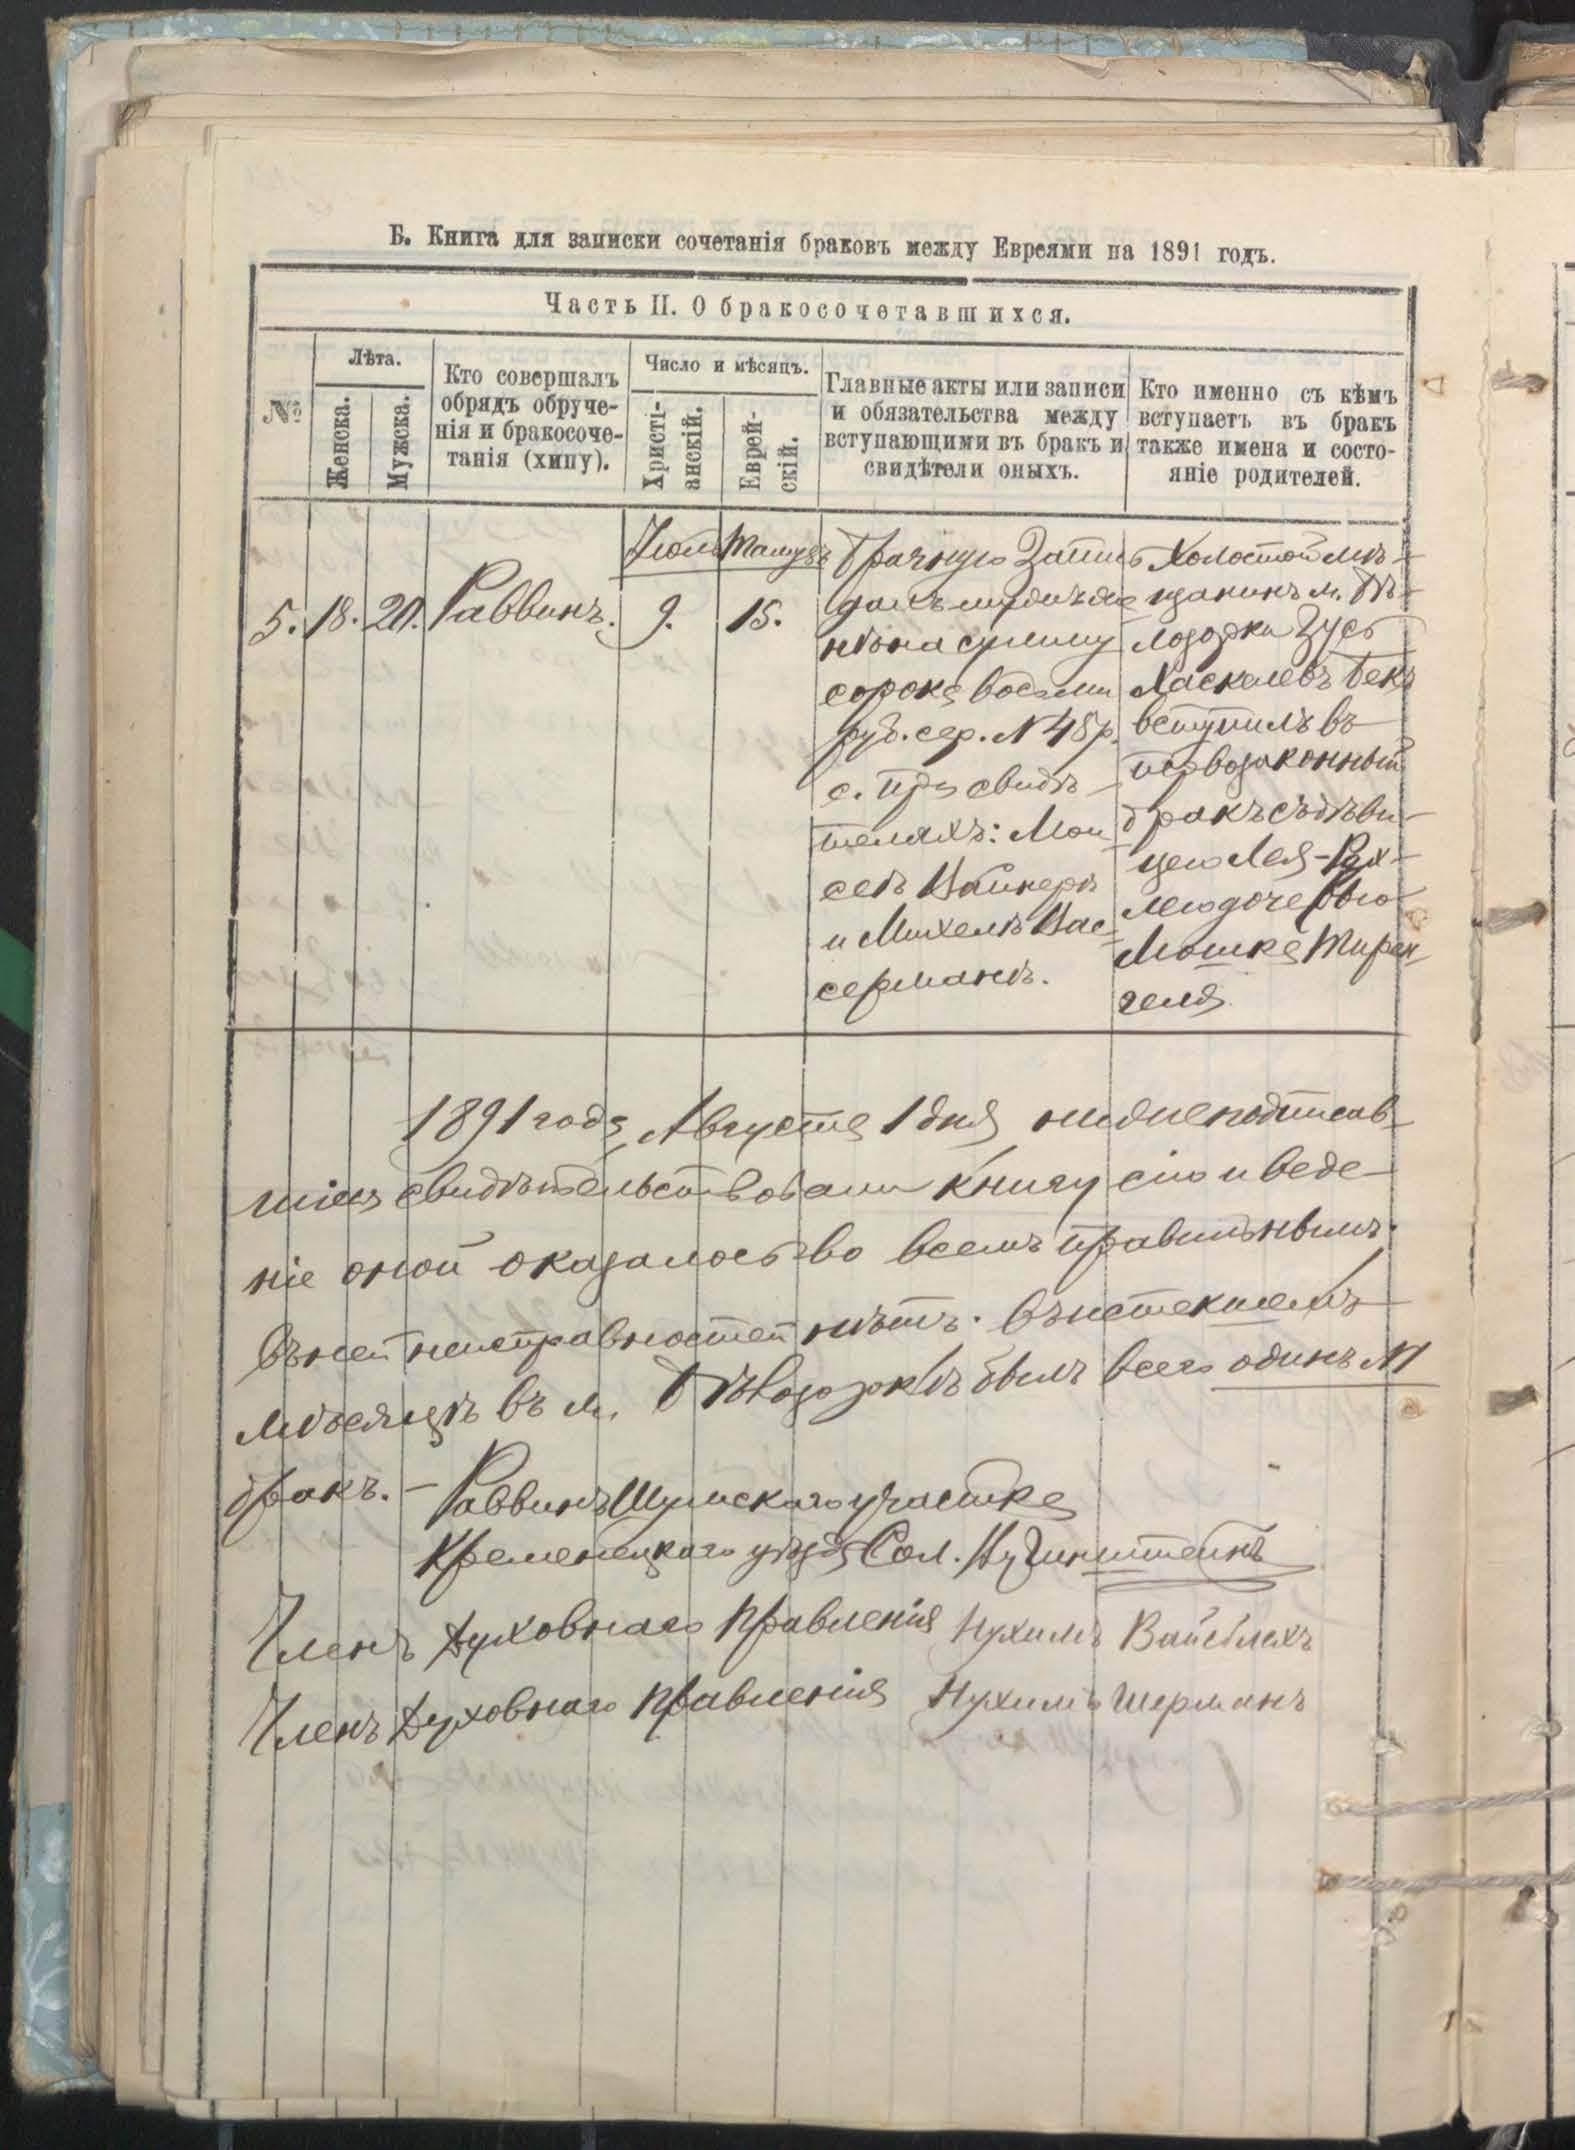 Б. Книга для записки сочетанія браковъ между Евреями на 1891 годъ.
Часть II. О бракосочетавшихся.
№
Лѣта.
Женска.
Мужска.
Кто совершалъ
обрядъ обруче-
нія и бракосоче-
танія (хипу).
Число и мѣсяцъ.
Христі-
анскій.
Еврей-
скій.
Главные акты или записи
и обязательства между
вступающими въ бракъ и
свидѣтели оныхъ.
Кто именно съ кѣмъ
вступаетъ въ бракъ
также имена и состо-
яніе родителей.
5.
18.
20.
Раввинъ.
Іюль
9.
Тамузъ
15.
Брачную Запись
далъ мужъ же
нѣ на сумму
сорокъ восемь
руб. сер. № 48 р.
с. при свидѣ-
теляхъ: Мой
сей
и Михель Вас-
серманъ.
Холостой мѣ-
щанинъ м. Бѣ-
лозорки Зусь
Хаскелевъ Бекъ
вступилъ въ
первозаконный
бракъ съ дѣви-
цею Лея-Рух-
лею дочерью
Мошка
1891 года Августа 1 дня нижеподписав-
шіеся свидѣтельствовали книгу сію и веде-
ніе оной оказалось во всемъ правильнымъ.
въ ней неисправностей нѣтъ. Въ истекшемъ
мѣсяцѣ въ м. Бѣлозоркѣ былъ всего одинъ №1
бракъ. – Раввинъ Шумскаго участка
Кременецкаго уѣзда Сол.
Членъ Духовнаго Правленія Нухимъ Вайсблехъ
Членъ Духовнаго Правленія Нухимъ Шерманъ